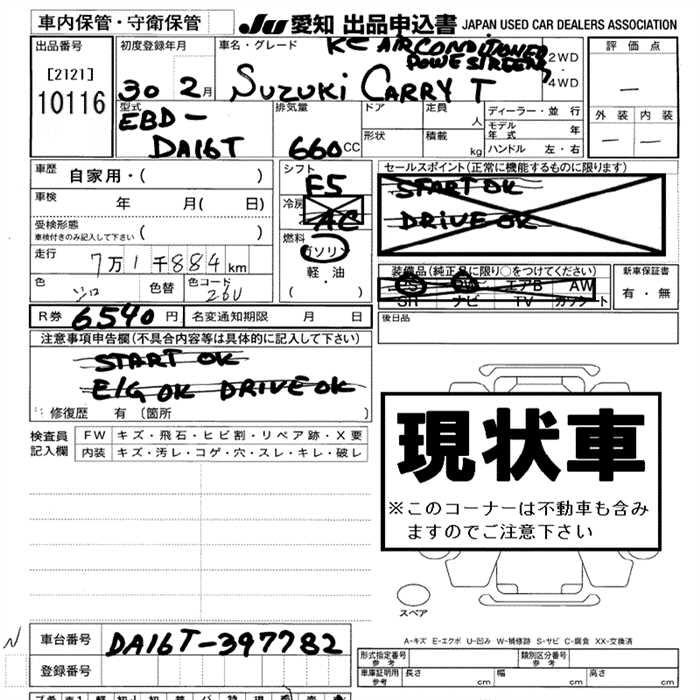 車内保管・守衛保管 JU 愛知 出品申込書 JAPAN USED CAR DEALERS ASSOCIATION
出品番号 初度登録年月 車名・グレード KC AIRCONDITIONER 2WD・4WD 評価点
POWESTREERNG
[2121]
10116
30 2月 SUZUKI CARRY T —
型式 排気量 ドア 定員 人 ディーラー・並行 外装 内装
EBD-
DA16T 660cc 形状 積載 kg モデル年式 年 — —
ハンドル 左・右
車歴 自家用・( ) シフト F5 セールスポイント(正常に機能するものに限ります)
START OK
車検 年 月( 日) 冷房 AC DRIVE OK
受検形態 ( )
車検付きのみ記入して下さい
燃料 ガソリン
走行 7万1千884km 軽・油
装備品(純正品に限り○をつけてください) 新車保証書
色 色替 色コード 26U ( ・ ) PS PW エアB AW 有・無
SR ナビ TV カワシート
R券 6540円 名変通知期限 月 日 後日品
注意事項申告欄(不具合内容等は具体的に記入して下さい)
START OK
E/G OK DRIVE OK
修復歴 有 〔箇所 〕
検査員記入欄 FW キズ・飛石・ヒビ割・リペア跡・X要
内装 キズ・汚レ・コゲ・穴・スレ・キレ・破レ
現状車
※このコーナーは不動車も含み
ますのでご注意下さい
スペア
A-キズ E-エクボ U-凹み W-補修跡 S-サビ C-腐食 XX-交換済
N 車台番号 DA16T-397782
登録番号
形式指定番号 参考 類別区分番号 参考
車庫証明用 参考 長さ cm 幅 cm 高さ cm